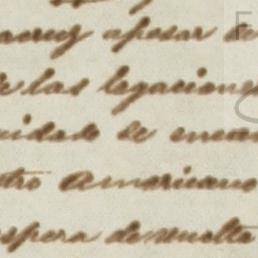 acruz apesar de
e las legaciones
uidado se encar
tro Americano
espera de vuelta